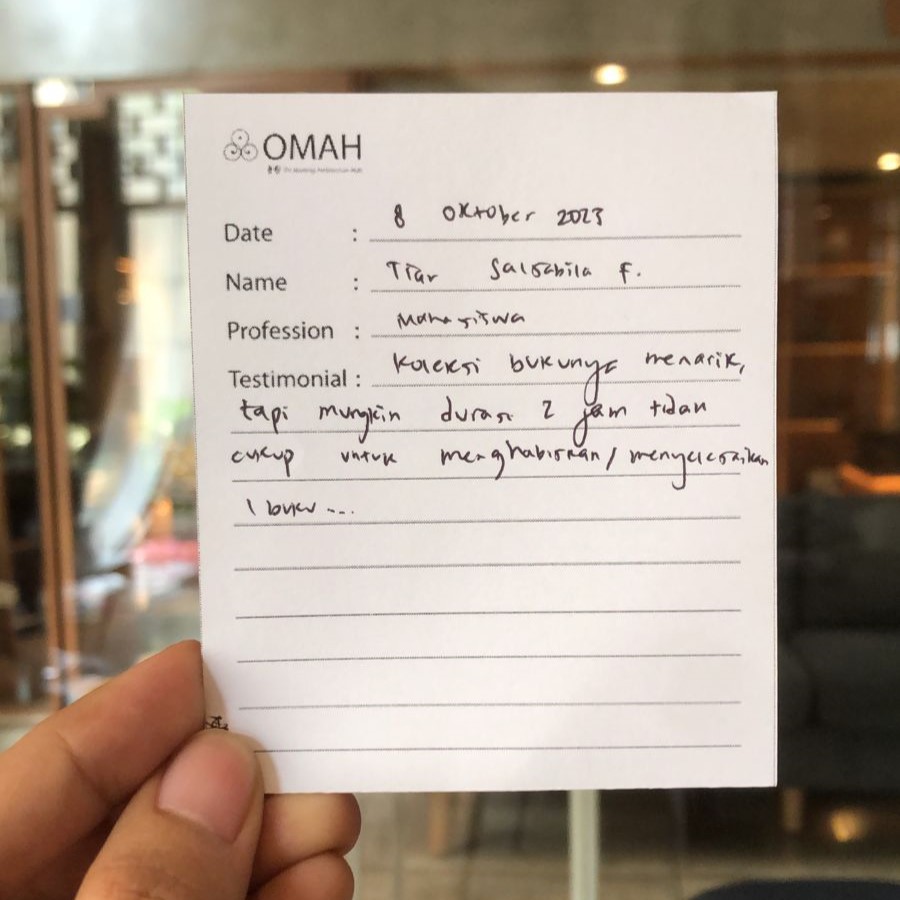 OMAH
Date : 8 Oktober 2023
Name : Tiar Salsabila F.
Profession : Mahasiswa
Testimonial : Koleksi bukunya menarik,
tapi mungkin durasi 2 jam tidak
cukup untuk menghabiskan/menyelesaikan
1 buku ...